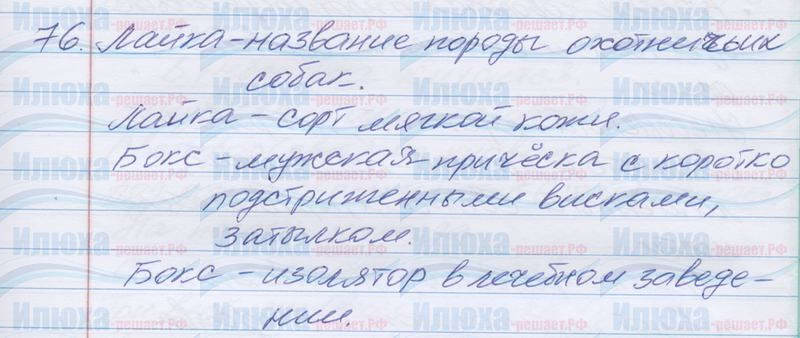 76. Лайка – название породы охотничьих
собак.
Лайка – сорт мягкой кожи.
Бокс – мужская причёска с коротко
подстриженными висками,
затылком.
Бокс – изолятор в лечебном заведе-
нии.
Илюха-решает.РФ